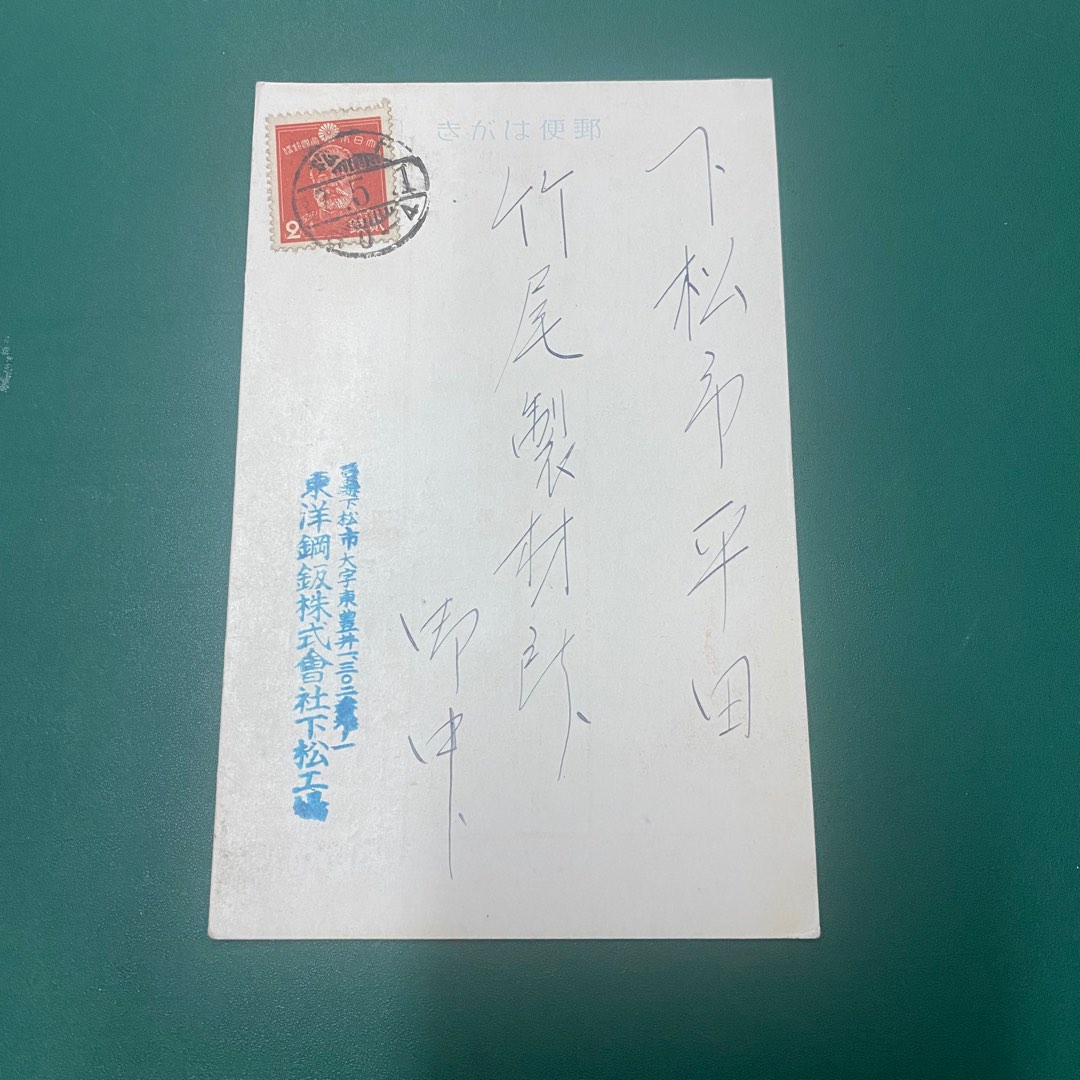 郵便はがき
下松市平田
竹尾製材所
御中
下松市大字東豊井一、三〇二
東洋鋼鈑株式會社下松工場
大日本帝國郵便
2
5
1